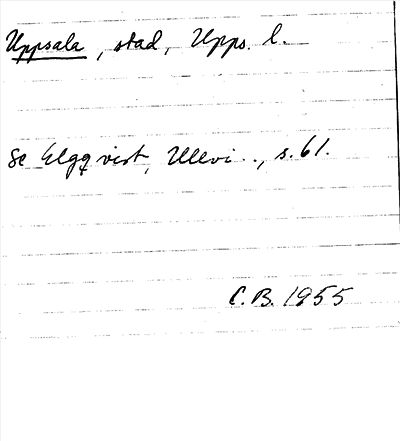 Uppsala, stad, Upps. l.
Se Elgqvist, Ullevi .., s. 61.
C.B. 1955